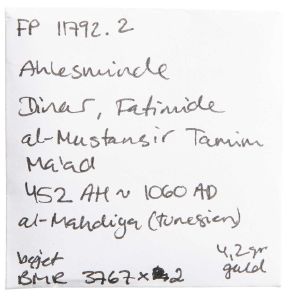 FP 11792.2
Ahlesminde
Dinar, Fatimide
al-Mustansir Tamim
Ma'ad
452 AH ~ 1060 AD
al-Mahdiya (tunesien)
4,2 gr
bøjet guld
BMR 3767x2